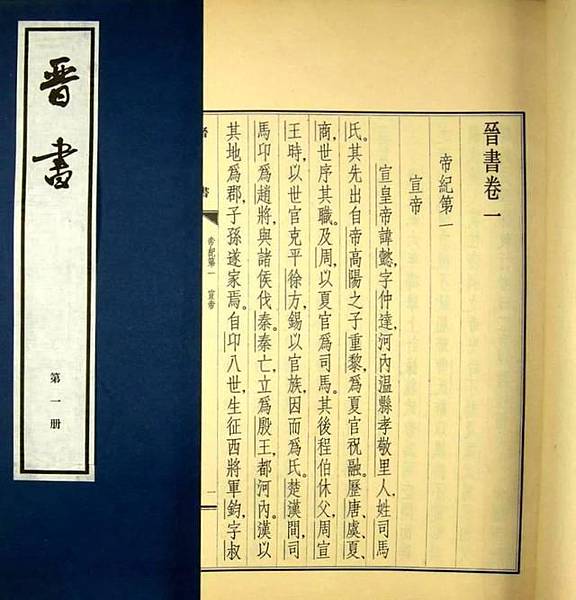 晋書
第一册
晉書卷一
帝紀第一
宣帝
宣皇帝諱懿，字仲達，河內溫縣孝敬里人，姓司馬
氏。其先出自帝高陽之子重黎，爲夏官祝融。歷唐、虞、夏、
商，世序其職。及周，以夏官爲司馬。其後程伯休父，周宣
王時，以世官克平徐方，錫以官族，因而爲氏。楚漢間，司
馬卬爲趙將，與諸侯伐秦。秦亡，立爲殷王，都河內。漢以
其地爲郡，子孫遂家焉。自卬八世，生征西將軍鈞，字叔
帝紀第一 宣帝
一